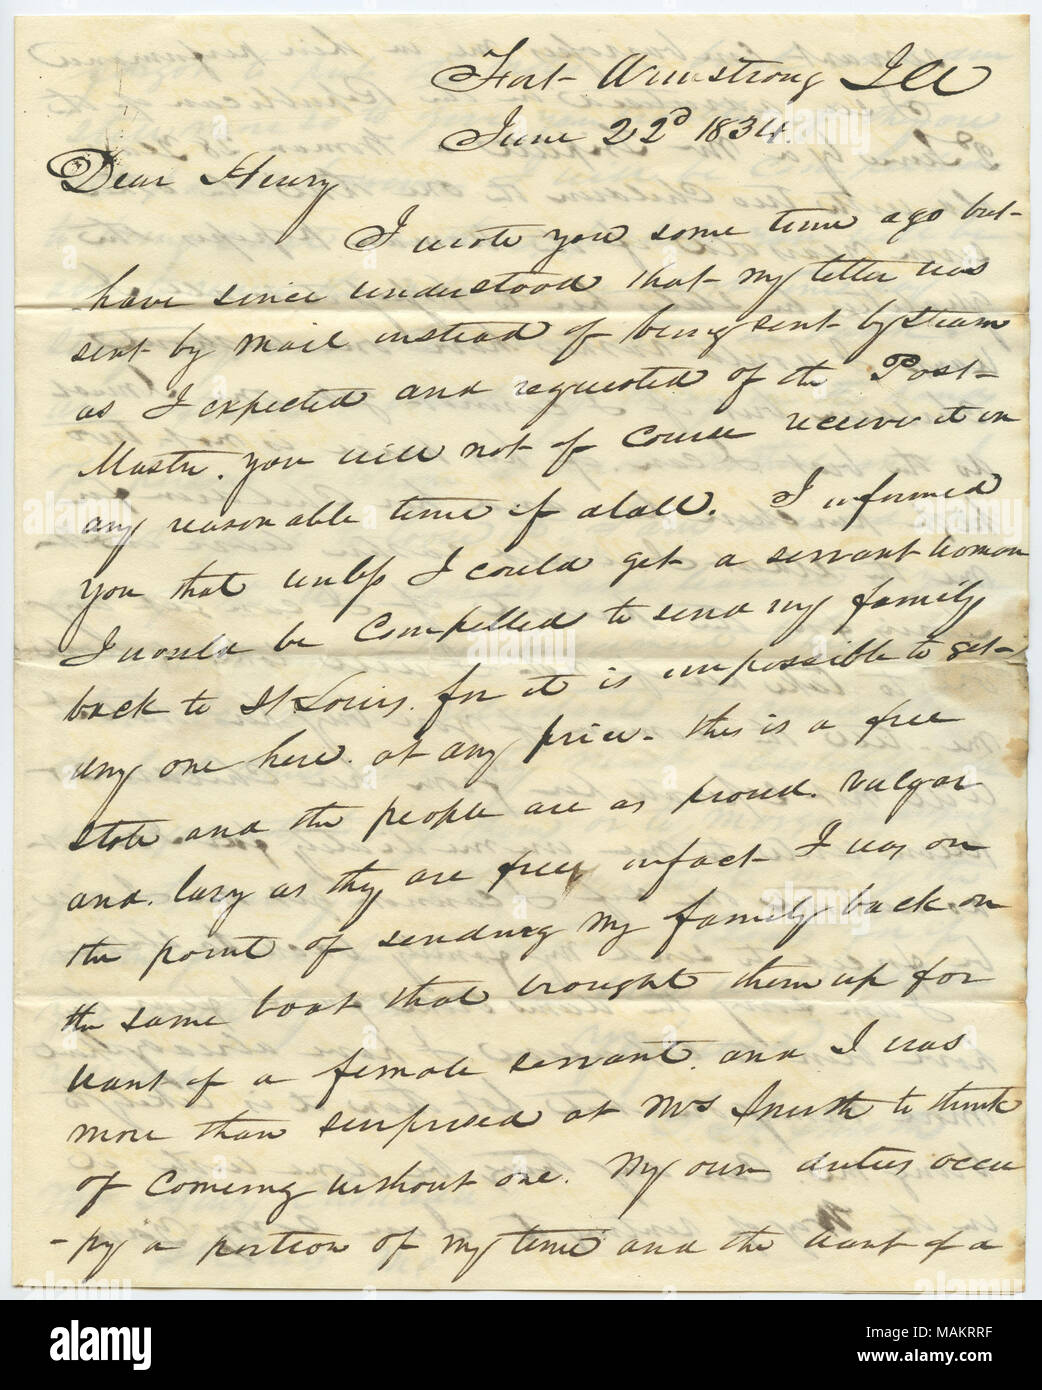 Fort Armstrong Ill
June 22d 1834.
Dear Henry
I wrote you some time ago but
have since understood that my letter was
sent by mail instead of being sent by Steam
as I expected and requested of the Post-
Master. you will not of Course receive it in
any reasonable time if atall. I informed
you that unless I could get a servant woman
I would be Compelled to send my family
back to St Louis. for it is impossible to get
any one here. at any price. this is a free
state and the people are as proud. vulgar
and. lazy as they are free, infact I was on
the point of sending my family back on
the same boat that brought them up for
want of a female servant. and I was
more than surprised at Mrs Smith to think
of Coming without one. My own duties occu
-py a portion of my time and the want of a
alamy
Image ID: MAKRRF
www.alamy.com